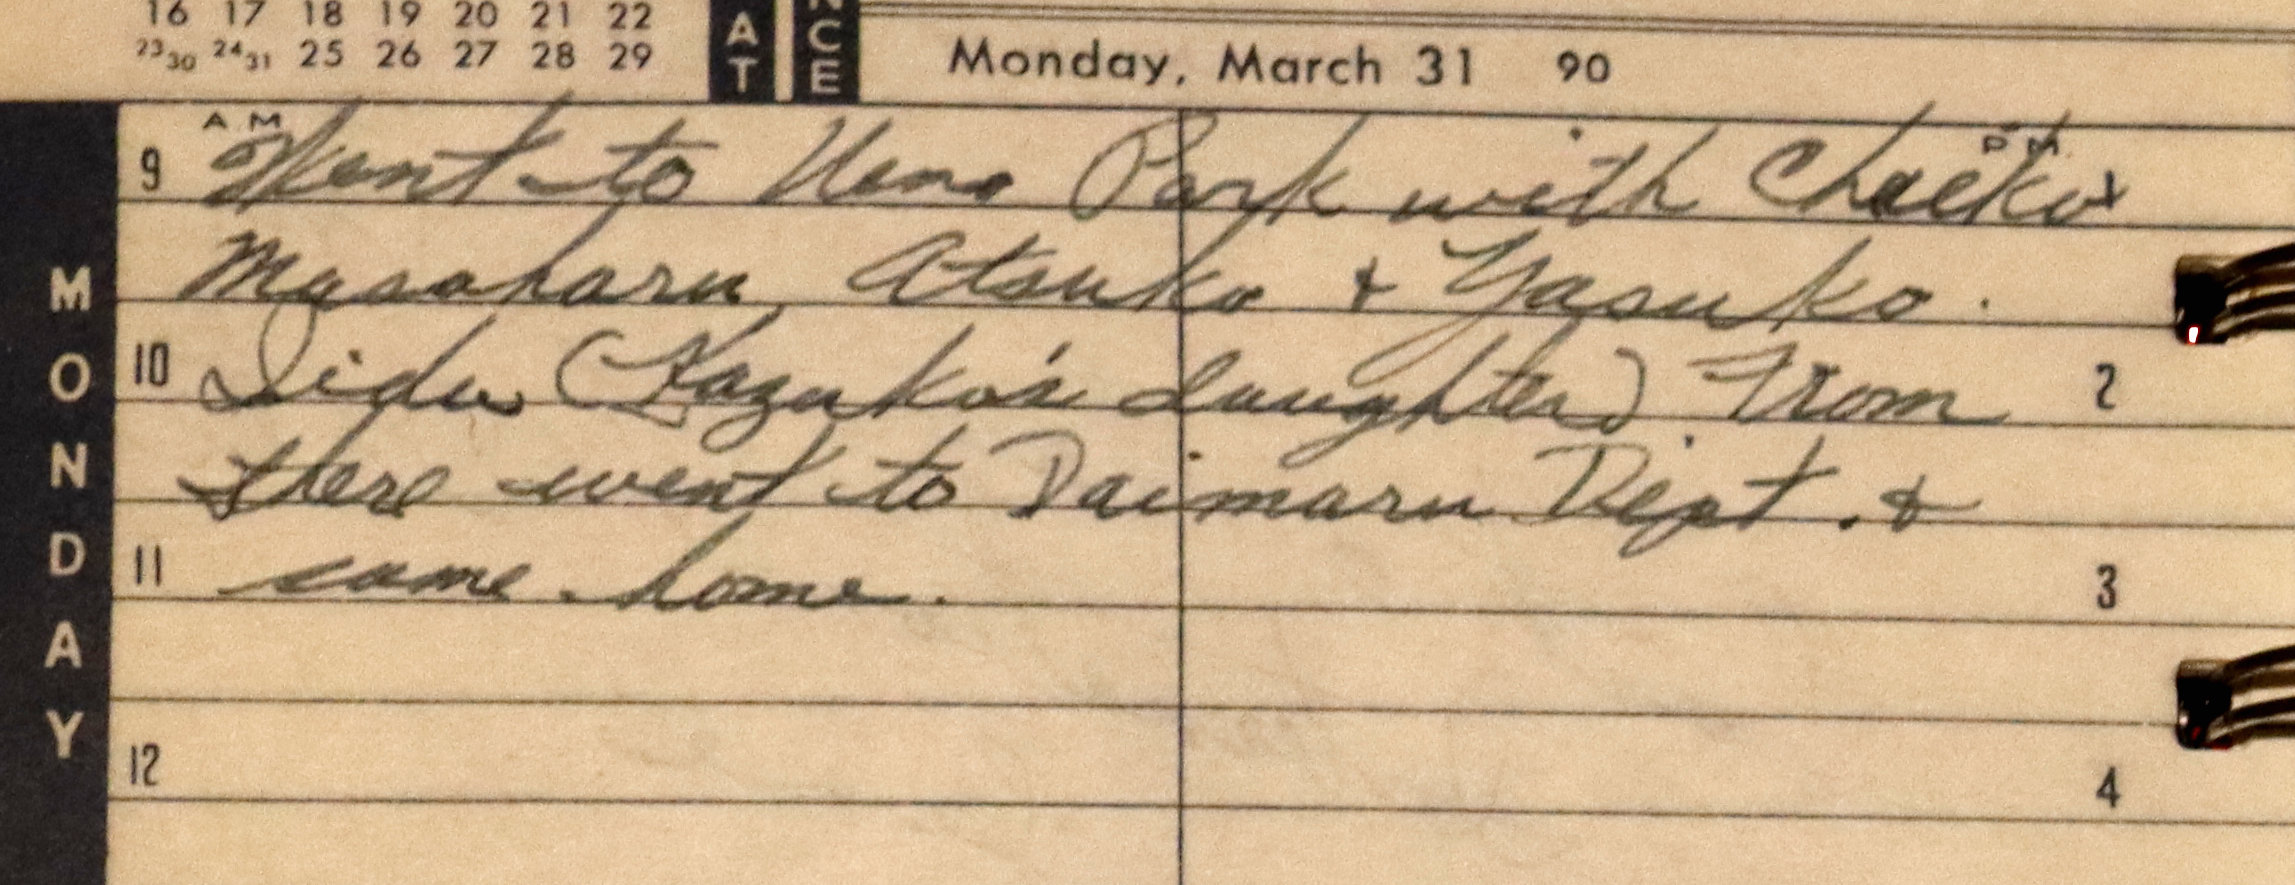 16 17 18 19 20 21 22
23 30 24 31 25 26 27 28 29
AT
NCE
Monday, March 31 90
MONDAY
AM
PM
9 Went to Ueno Park with Chieko &
Masaharu, Atsuko & Yasuko.
10 (Kazuko's daughter) From 2
there went to Daimaru Dept. &
11 came home. 3
12 4